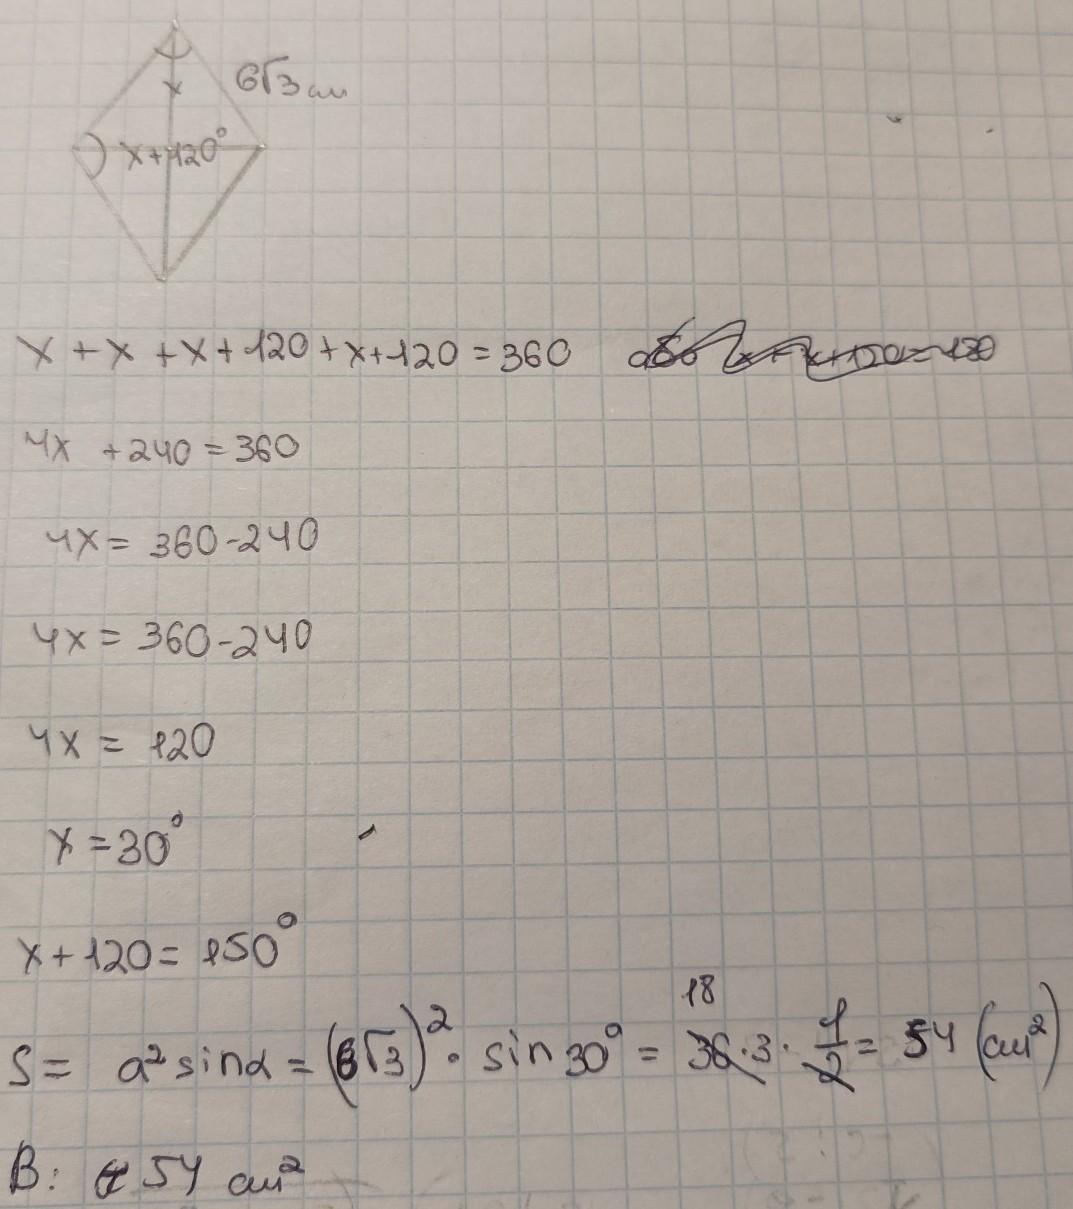 6√3 см
x
x+120°
x + x + x + 120 + x + 120 = 360
4x + 240 = 360
4x = 360-240
4x = 360-240
4x = 120
x = 30°
x + 120 = 150°
18
S = a² sinα = (6√3)² · sin 30° = 36 · 3 · 1/2 = 54 (см²)
В: 54 см²